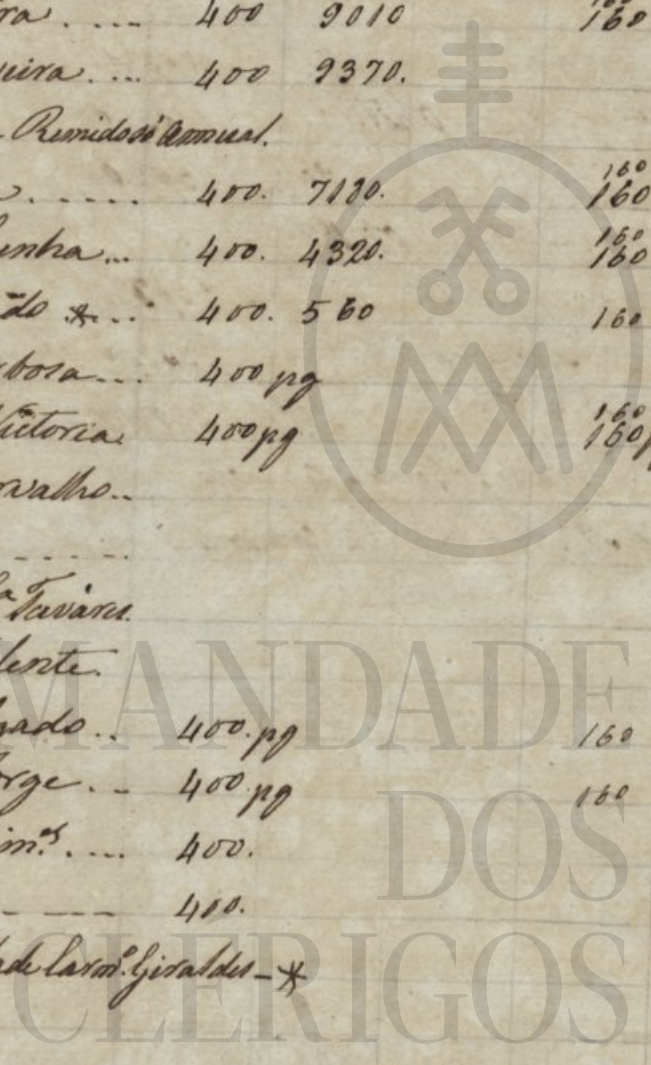 ra..... 400 9010 160
eira.... 400 9370.
Remido só annual.
...... 400. 7180. 160 160
unha... 400. 4320. 160 160
do *... 400. 560 160
bosa... 400 pg
Victoria. 400 pg 160 160
rvalho..
......
Tavares.
lente.
hado.. 400. pg 160
orge.. 400 pg 160
im.es.... 400.
---- 400.
de Carm.o Giraldes - *
MANDADE
DOS
CLERIGOS